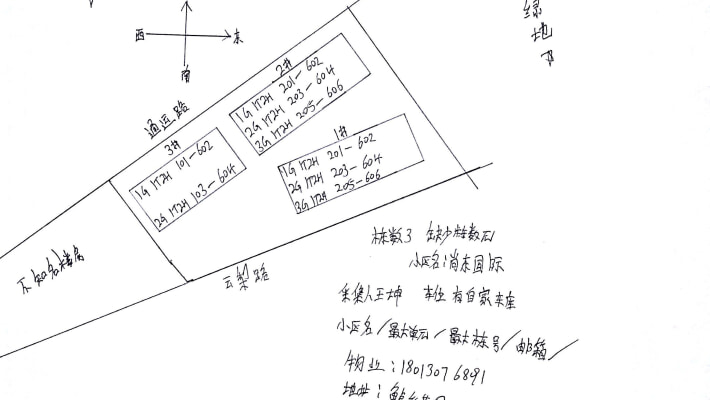 绿
地
西
东
南
通远路
2#
1G 1T2H 201-602
2G 1T2H 203-604
3G 1T2H 205-606
3#
1G 1T2H 101-602
2G 1T2H 103-604
1#
1G 1T2H 201-602
2G 1T2H 203-604
3G 1T2H 205-606
不知名楼房
云梨路
栋数3 缺少栋数0
小区名:尚东国际
采集人王坤 车位 有自家车座
小区名/最大单元/最大栋号/邮箱/
物业:18013076891
地址: